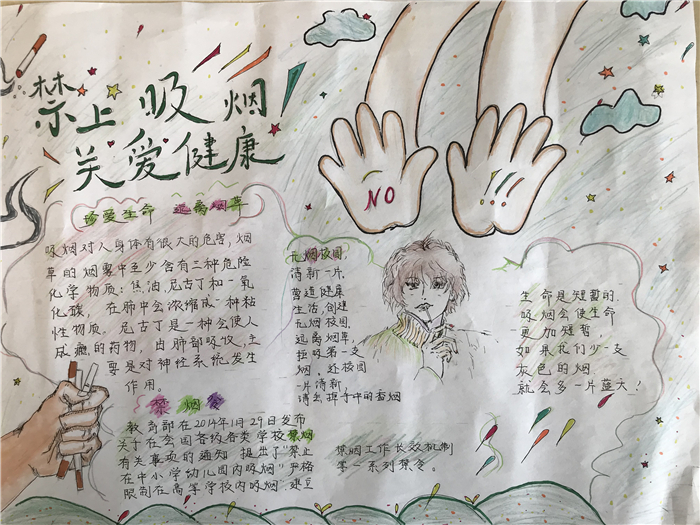 禁止吸烟
关爱健康
NO
珍爱生命 远离烟草
吸烟对人身体有很大的危害,烟
草的烟雾中至少含有三种危险
化学物质:焦油,尼古丁和一氧
化碳, 在肺中会浓缩成一种粘
性物质. 尼古丁是一种会使人
成瘾的药物, 由肺部吸收, 主
要是对神经系统发生
作用。
无烟校园,
清新一片,
营造健康
生活,创建
无烟校园,
远离烟草,
拒吸第一支
烟, 还校园
一片清新,
请丢掉手中的香烟
生命是短暂的,
吸烟会使生命
更加短暂
如果我们少一支
灰色的烟
就会多一片蓝天!
禁烟爱
教育部在2014年1月29日发布
关于在全国各级各类学校禁烟
有关事项的通知 提出了"禁止
在中小学幼儿园内吸烟" 严格
限制在高等学校内吸烟, 建立
禁烟工作长效机制
等一系列禁令。